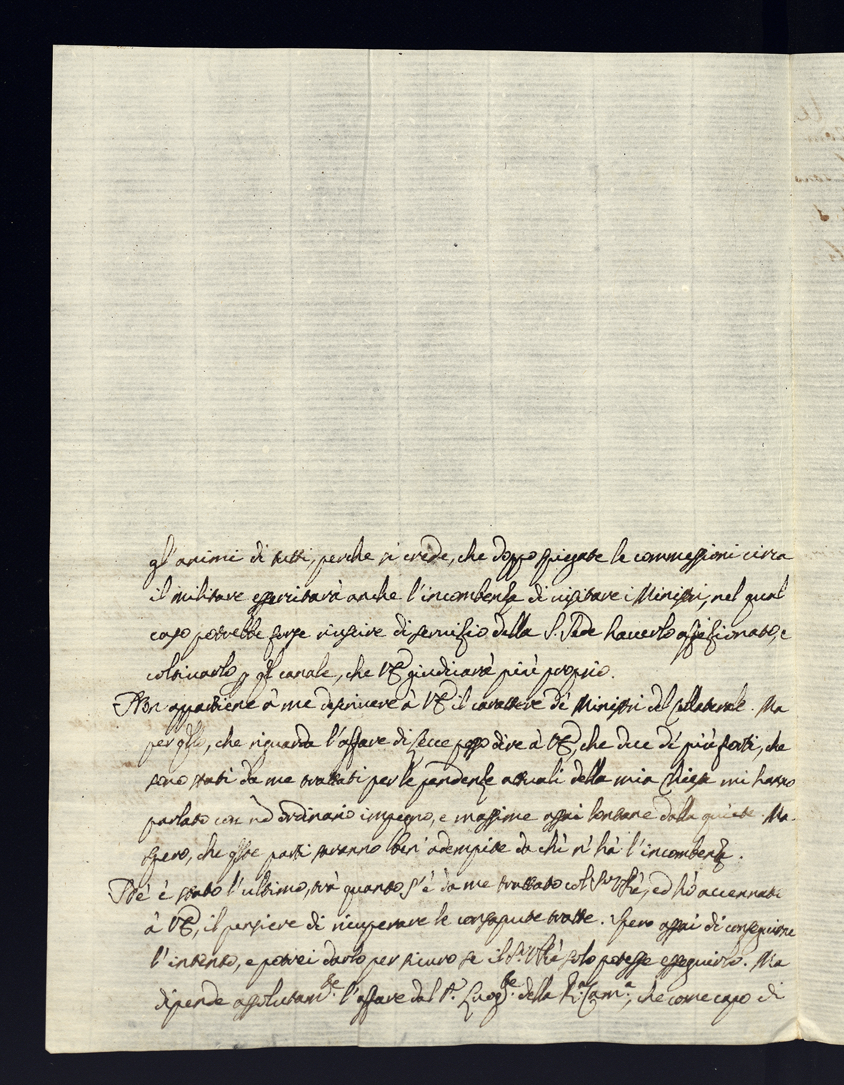 gl'animi di tutti, perche si crede, che doppo spiegate le commessioni circa
il militare esercitarà anche l'incombenza di visitare i Ministri, nel qual
caso potrebbe forse riuscire di servizio della S. Sede haverlo affezionato, e
coltivarlo p quel canale, che VE giudicarà più proprio.
Non appartiene à me descrivere à VE il carattere de' Ministri del Collaterale. Ma
per quello, che riguarda l'affare di Lecce posso dire à VE, che due de' più forti, che
sono stati da me trattati per le pendenze attuali della mia Chiesa mi hanno
parlato con nò ordinario impegno, e massime assai lontane dalla quiete. Ma
spero, che queste parti saranno ben' adempite da chi n' hà l'incombenza.
Nè è stato l'ultimo, trà quanto s'è da me trattato col Sr, ed hò accennato
à VE, il pensiere di ricuperare le consapute tratte. Spero assai di conseguirne
l'intento, e potrei darlo per sicuro se il Sr solo potesse esseguirlo. Ma
dipende assolutamte l'affare dal Sr. Luogte. della Ra. Camra, che come capo di